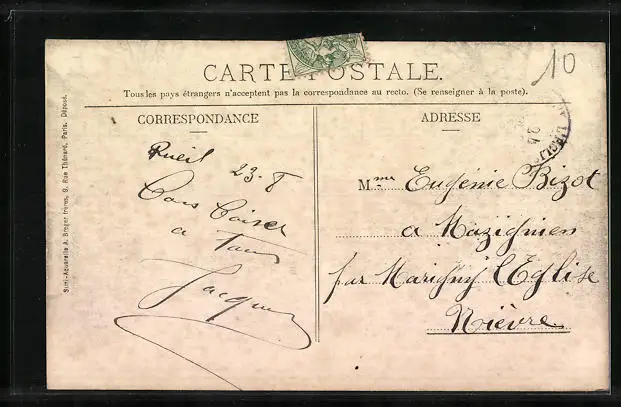 10
CARTE POSTALE.
Tous les pays étrangers n'acceptent pas la correspondance au recto. (Se renseigner à la poste).
CORRESPONDANCE
ADRESSE
Rueil 23-8
Baiser
a Tous
Jacques
Mme Eugénie Bizot
a Mazignien
par Marigny l'Eglise
Nièvre
24
Simi-Aquarelle A. Breger frères, 9, Rue Thénard, Paris. Déposé.